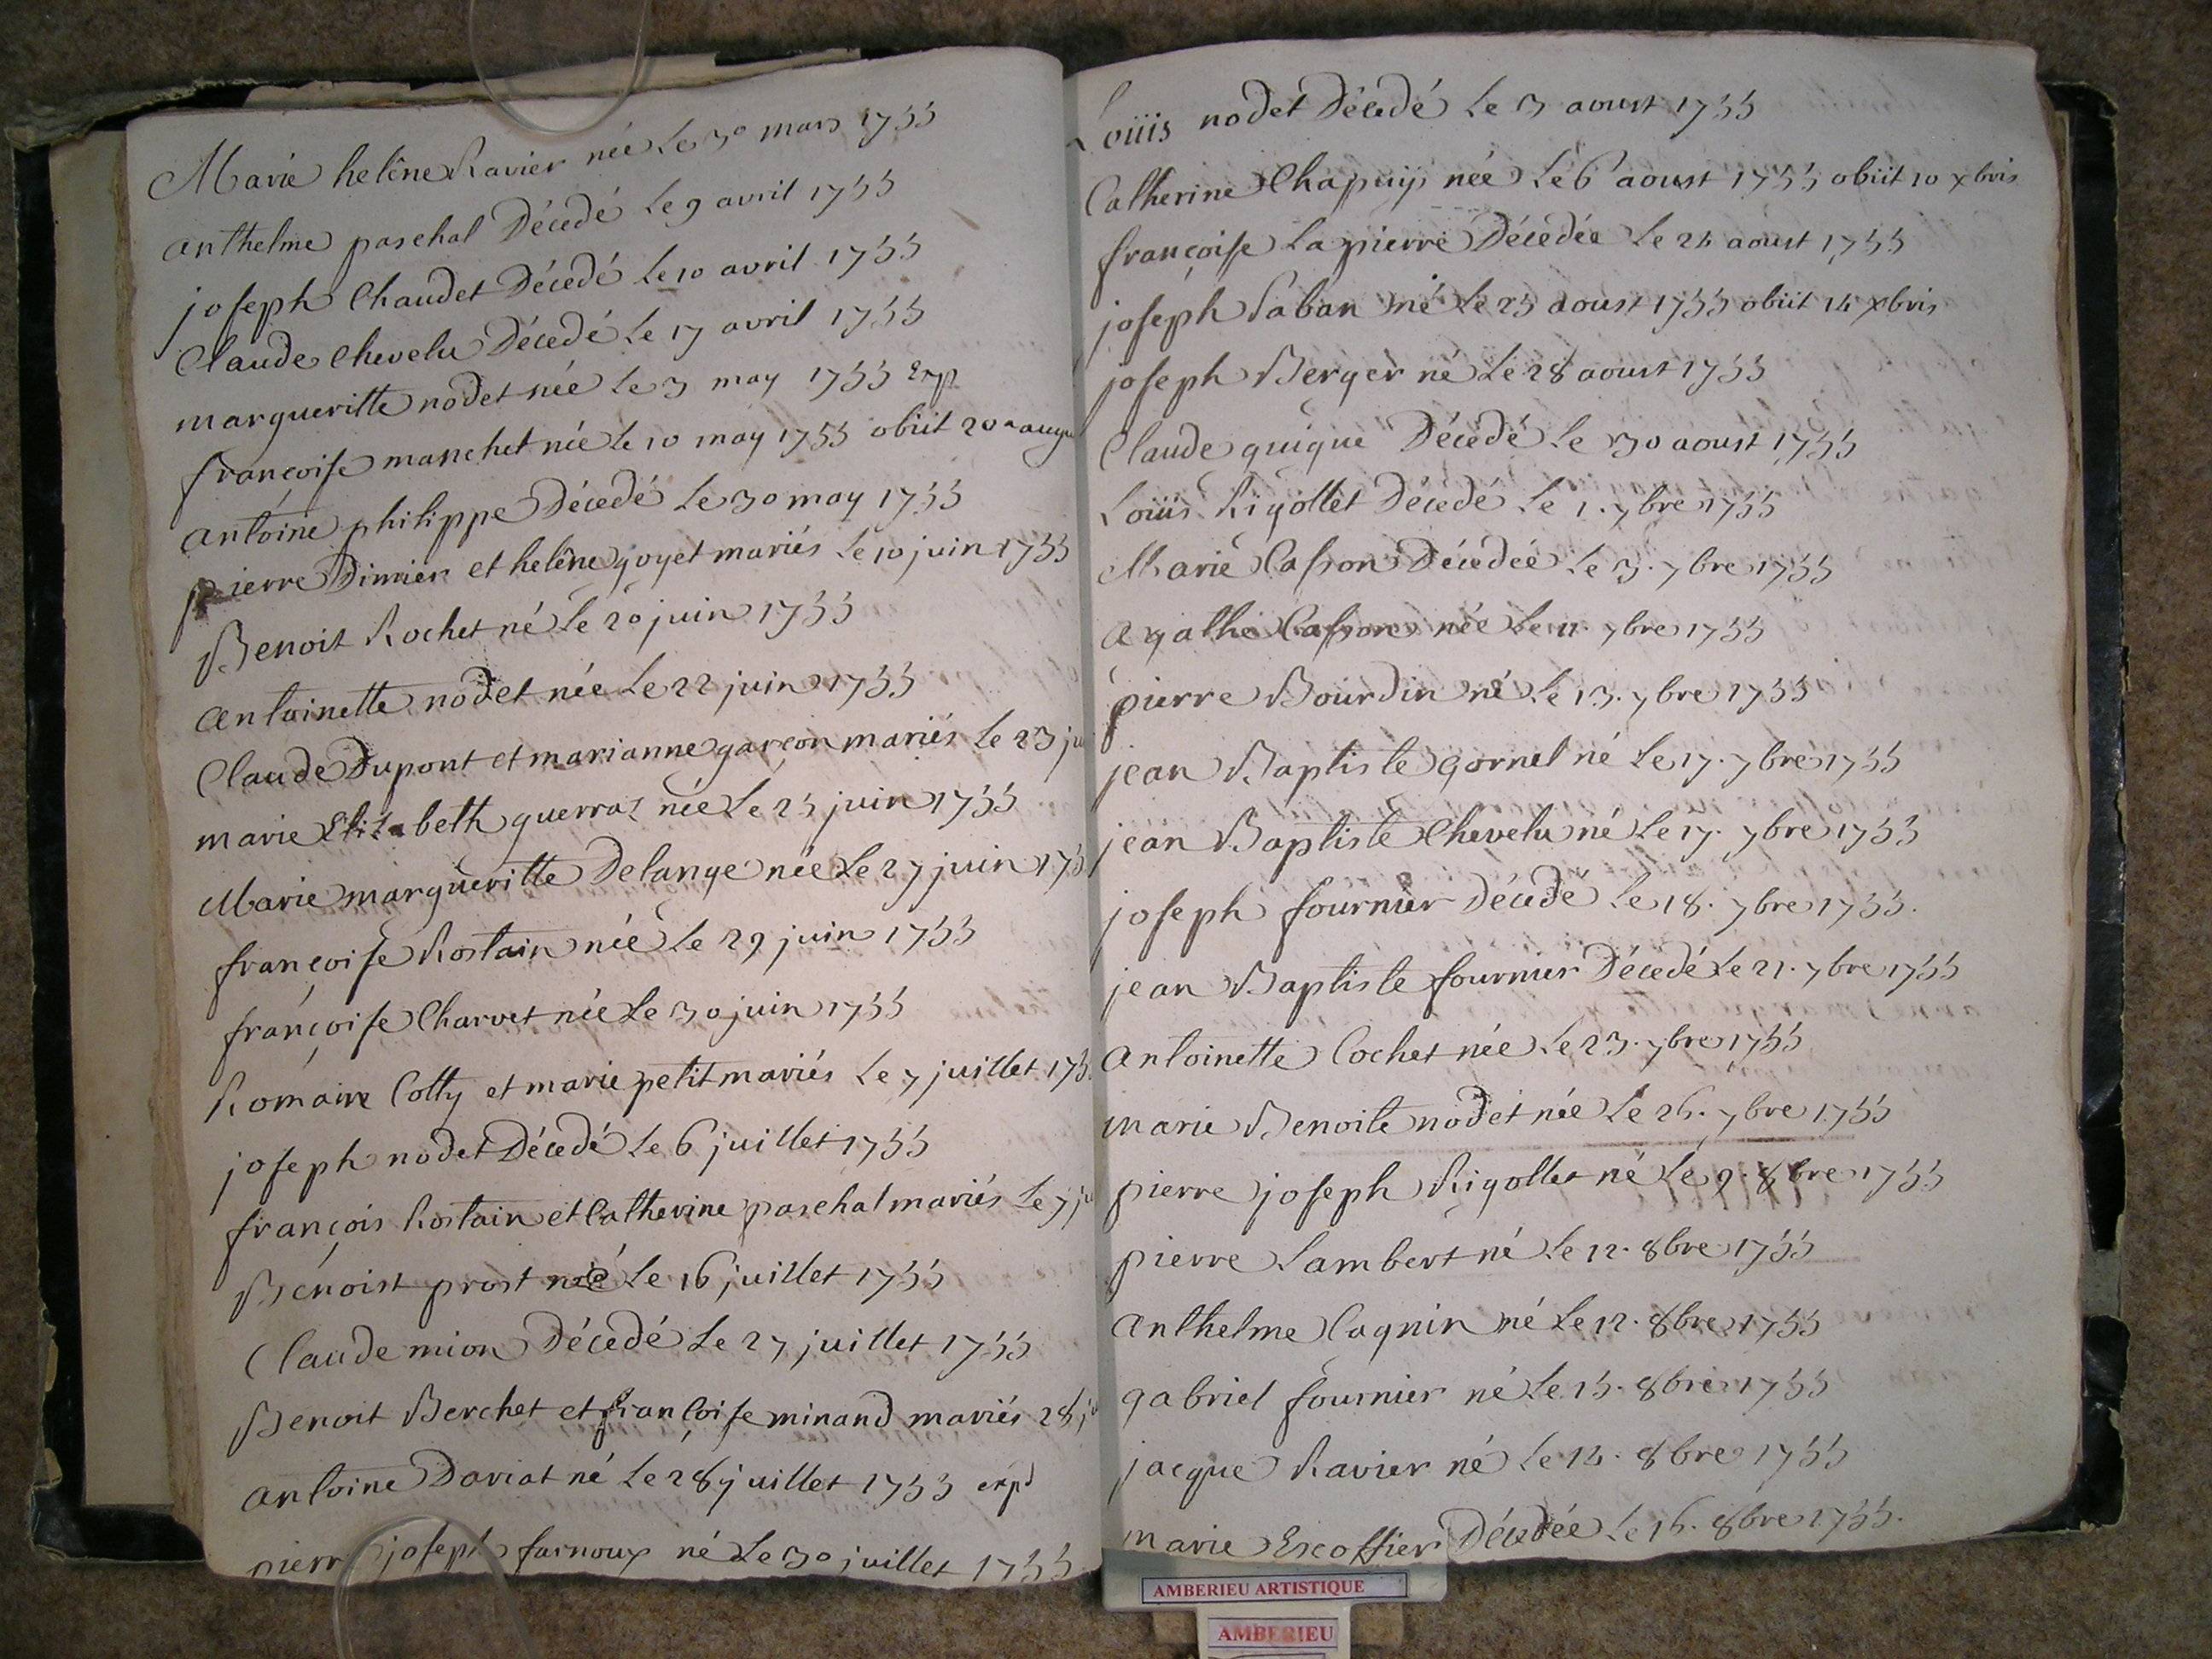 Marie helêne Ravier née Le 30 mars 1755
anthelme paschal Décedé Le 9 avril 1755
joseph Chaudet Décedé Le 10 avril 1755
Claude Chevelu Décedé Le 17 avril 1755
margueritte nodet née Le 3 may 1755 Exp
françoise manchet née Le 10 may 1755 obiit 20a augu
antoine philippe Décedé Le 30 may 1755
pierre Dimier et helêne goyet mariés Le 10 juin 1755
Benoit Rochet né Le 20 juin 1755
antoinette nodet née Le 22 juin 1755
Claude Dupont et marianne garçon mariés Le 23 ju
marie Elizabeth guerraz née Le 25 juin 1755
Marie margueritte Delange née Le 27 juin 175
françoise Rostain née Le 29 juin 1755
françoise Charvet née Le 30 juin 1755
Romain Cotty et marie petit mariés Le 7 juillet 175
joseph nodet Décedé Le 6 juillet 1755
françois Rostain et Catherine paschal mariés Le 7 ju
Benoist prost né Le 16 juillet 1755
Claude mion Décedé Le 27 juillet 1755
Benoit Berchet et françoise minand mariés 28 ju
antoine Daviat né Le 28 juillet 1755 expd
pierre joseph farnoux né Le 30 juillet 1755
Loüis nodet Décedé Le 3 aoust 1755
Catherine Chapuy née Le 6 aoust 1755 obiit 10 xbris
françoise La pierre Décedée Le 24 aoust 1755
joseph Laban né Le 25 aoust 1755 obiit 14 xbris
joseph Berger né Le 28 aoust 1755
Claude guigue Décedé Le 30 aoust 1755
Loüis Rigollet Décedé Le 1. 7bre 1755
Marie Casson Décedée Le 3. 7bre 1755
agathe Casson née Le 11. 7bre 1755
pierre Bourdin né Le 13. 7bre 1755
jean Baptiste gornet né Le 17. 7bre 1755
jean Baptiste Chevelu né Le 17. 7bre 1755
joseph fournier Décedé Le 18. 7bre 1755.
jean Baptiste fournier Décedé Le 21. 7bre 1755
antoinette Cochet née Le 23. 7bre 1755
marie Benoite nodet née Le 26. 7bre 1755
pierre joseph Rigollet né Le 9. 8bre 1755
pierre Lambert né Le 12. 8bre 1755
anthelme Cagnin né Le 12. 8bre 1755
gabriel fournier né Le 15. 8bre 1755
jacque Ravier né Le 14. 8bre 1755
marie Escoffier Décedée Le 16. 8bre 1755.
AMBERIEU ARTISTIQUE
AMBERIEU